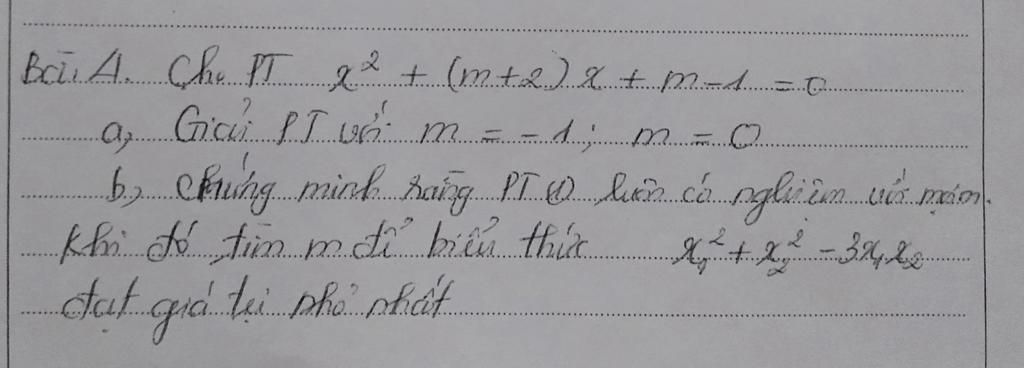 Bài 1. Cho PT x² + (m+2)x + m-1 = 0
a, Giải PT với m = -1; m = 0
b, Chứng minh rằng PT (1) luôn có nghiệm với mọi m.
Khi đó, tìm m để biểu thức x₁² + x₂² - 3x₁x₂
đạt giá trị nhỏ nhất